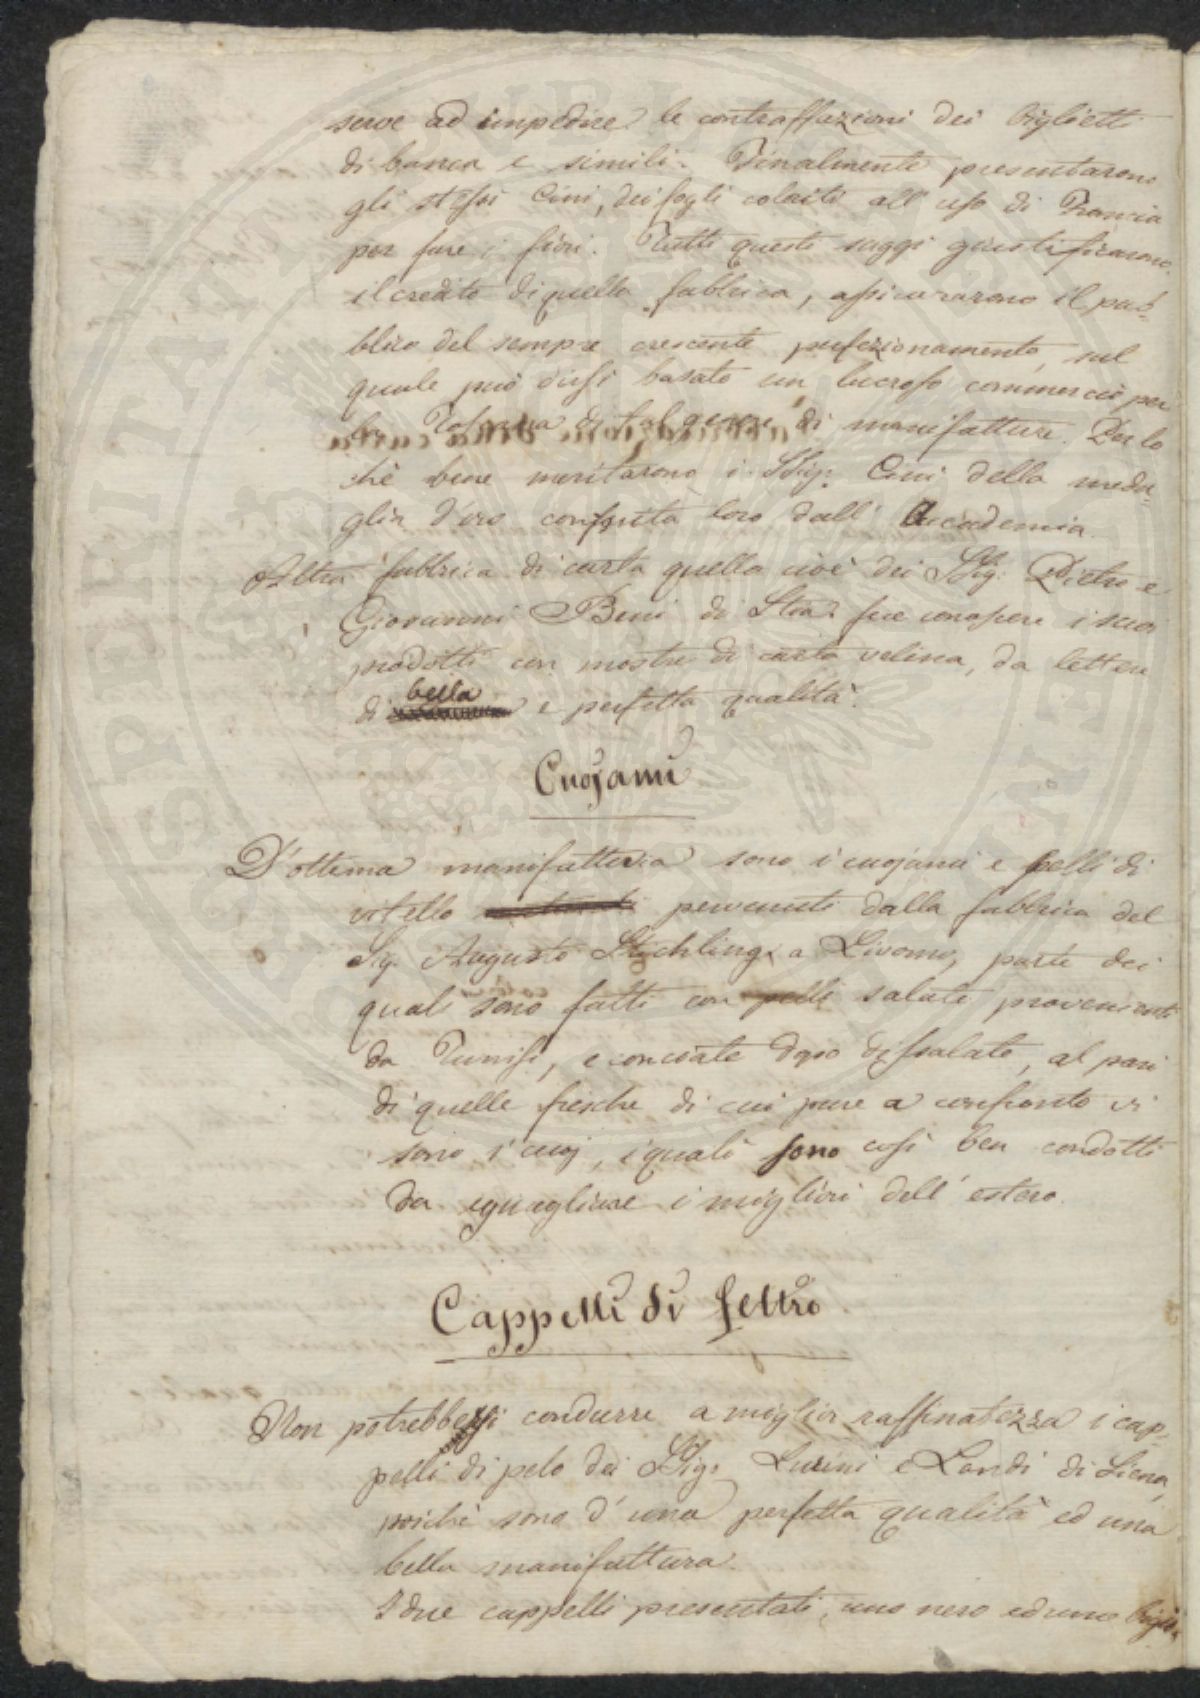 serve ad impedire le contraffazioni dei biglietti
di banca e simili. Finalmente presentarono
gli stessi Cini, dei fogli coloriti all'uso di Francia
per fare i fiori. Tutti questi saggi giustificarono
il credito di quella fabbrica, assicurarono il pub-
blico del sempre crescente perfezionamento, sul
quale può dirsi basato un lucroso commercio per
la Toscana di tal genere di manifatture. Per lo
chè bene meritarono i SSig: Cini della meda-
glia d'oro conferita loro dall' Accademia.
Altra fabbrica di carta quella cioè dei SSig: Pietro e
Giovanni Beni di Stia fece conoscere i suoi
prodotti con mostre di carta velina, da lettere
di bella e perfetta qualità.
Cuojami
D'ottima manifattura sono i cuojami e pelli di
vitello pervenuti dalla fabbrica del
Sig. Augusto Stichling a Livorno, parte dei
quali sono fatti con pelli salate provenienti
da Tunisi, e conciate dopo dissalate, al pari
di quelle fresche di cui pure a confronto vi
sono i cuoj, i quali sono così ben condotti
da eguagliare i migliori dell' estero.
Cappelli di feltro
Non potrebbersi condurre a miglior raffinatezza i cap-
pelli di pelo dei SSig: Lurini e Landi di Siena,
poichè sono d'una perfetta qualità ed una
bella manifattura.
I due cappelli presentati, uno nero ed uno bigio
SPIRITAT